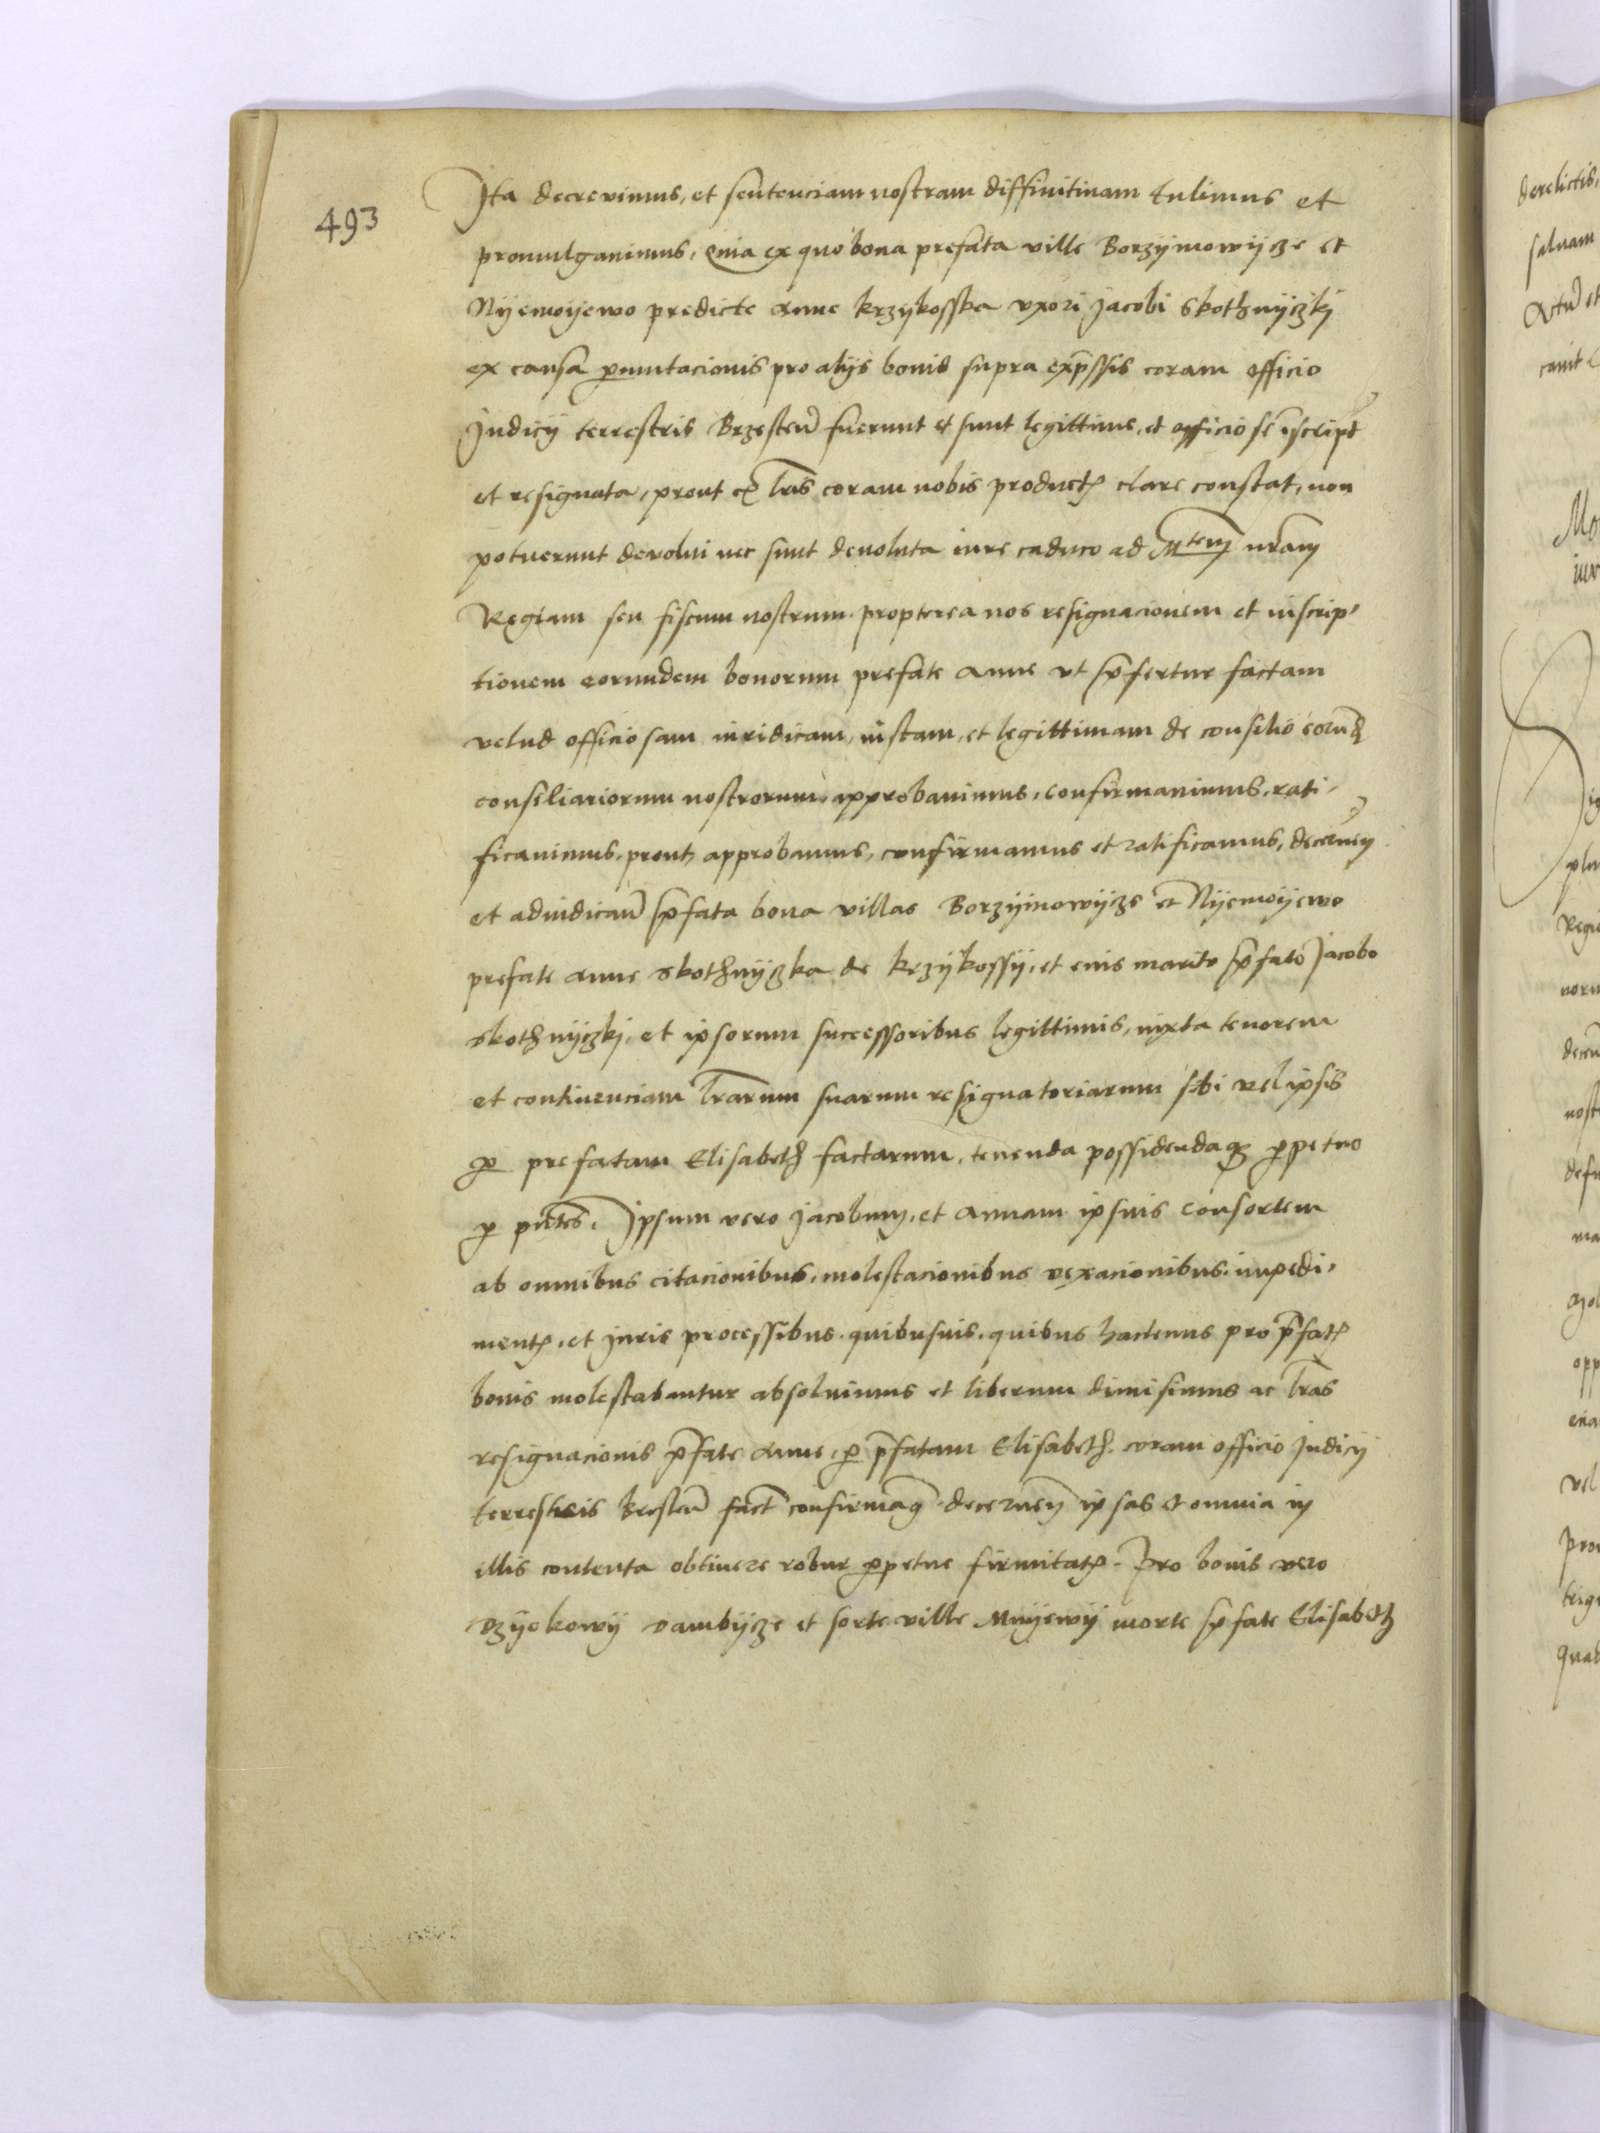 493
Ita decrevimus, et sentenciam nostram diffinitivam tulimus et
promulgavimus, Quia ex quo bona prefata ville Borzijmowijcze et
Nijemoijewo predicte Anne krzijkosska vxori Jacobi Skothnijczkj
ex causa ꝑmutacionis pro alijs bonis supra exp̄ssis coram officio
Judicij terrestris Brzesten̄ fuerunt et sunt legittime, et officiose īscript
et resignata, prout ex lr̄is coram nobis product clare constat, non
potuerunt devolui nec sunt devoluta iure caduco ad Mtem nr̄am
Regiam seu fiscum nostrum. propterea nos resignacionem et inscrip-
tionem eorundem bonorum prefate Anne vt p̄fertur factam
velud officiosam iuridicam, iustam, et legittimam de consilio eorund
consiliariorum nostrorum, approbavimus, confirmavimus, rati-
ficavimus, prout approbamus, confirmamus et ratificamus, decernen
et adiudican̄ p̄fata bona villas Borzijmowijcze et Nijemoijewo
prefate Anne Skothnijczka de krzijkossij, et eius marito p̄fato Jacobo
Skothnijczkj, et ipsorum successoribus legittimis, iuxta tenorem
et continenciam lr̄arum suarum resignatoriarum sibi vel ipsis
ꝑ prefatam Elisabeth factarum, tenenda possidendaq ꝑpetuo
ꝑ pn̄tes. Ipsum vero Jacobum, et Annam ipsius consortem
ab omnibus citacionibus, molestacionibus vexacionibus, impedi-
ment, et Juris processibus, quibusuis, quibus hactenus pro p̄fat
bonis molestabantur absoluimus et liberum dimisimus ac lr̄as
resignacionis p̄fate Anne, ꝑ p̄fatam Elisabeth coram officio Judicij
terrestris bresten̄ fact confirmaq decernen ipsas et omnia in
illis contenta obtinere robur ꝑpetue firmitat. Pro bonis vero
dambijcze et sorte ville Mnijewij morte p̄fate Elisabeth
derelictis,